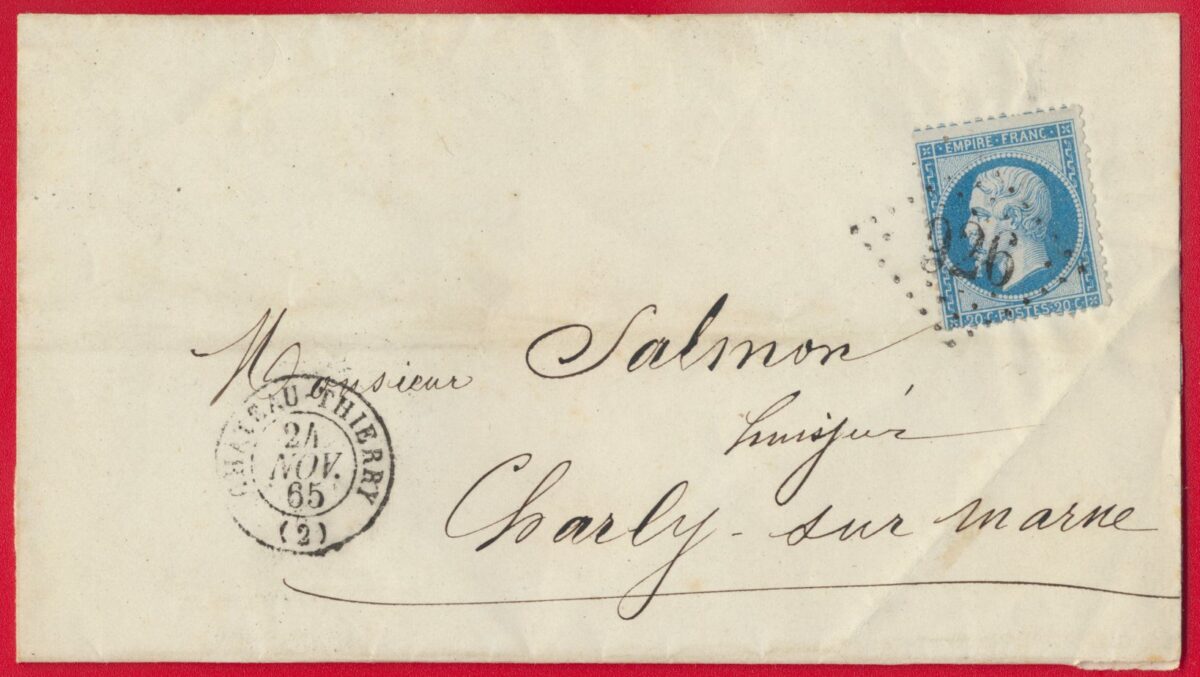 EMPIRE FRANC
926
20 C POSTES 20 C
Monsieur Salmon
huissier
Charly - sur marne
CHATEAU-THIERRY
24
NOV.
65
(2)